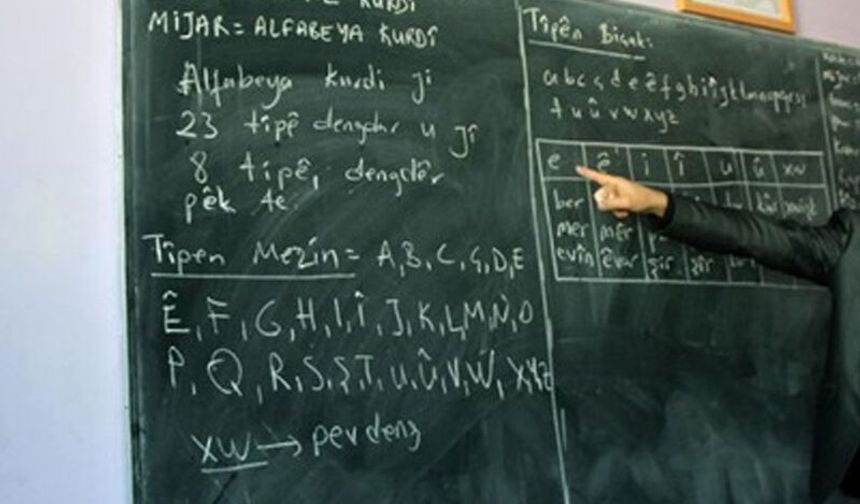 KURDÎ
MİJAR = ALFABEYA KURDÎ
Alfabeya kurdi ji
23 tîpê dengdar u jî
8 tîpê, dengdêr
pêk te
Tîpen Mezin = A, B, C, Ç, D, E
Ê, F, G, H, I, Î, J, K, L, M, N, O
P, Q, R, S, Ş, T, U, Û, V, W, X, Y, Z
xw → pevdeng
Tîpên Biçuk:
a b c ç d e ê f g h i î j k l m n o p q r s ş
t u û v w x y z
e ê i î u û xw
ber kûr
mer mêr
evîn êvar zir zîr